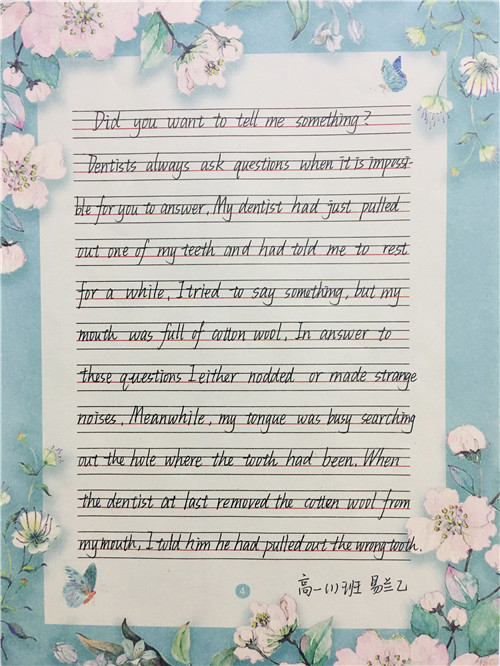 Did you want to tell me something?
Dentists always ask questions when it is impossi-
ble for you to answer. My dentist had just pulled
out one of my teeth and had told me to rest
for a while. I tried to say something, but my
mouth was full of cotton wool. In answer to
these questions I either nodded or made strange
noises. Meanwhile, my tongue was busy searching
out the hole where the tooth had been. When
the dentist at last removed the cotten wool from
my mouth, I told him he had pulled out the wrong tooth.
高一(1)班 易兰乙
4